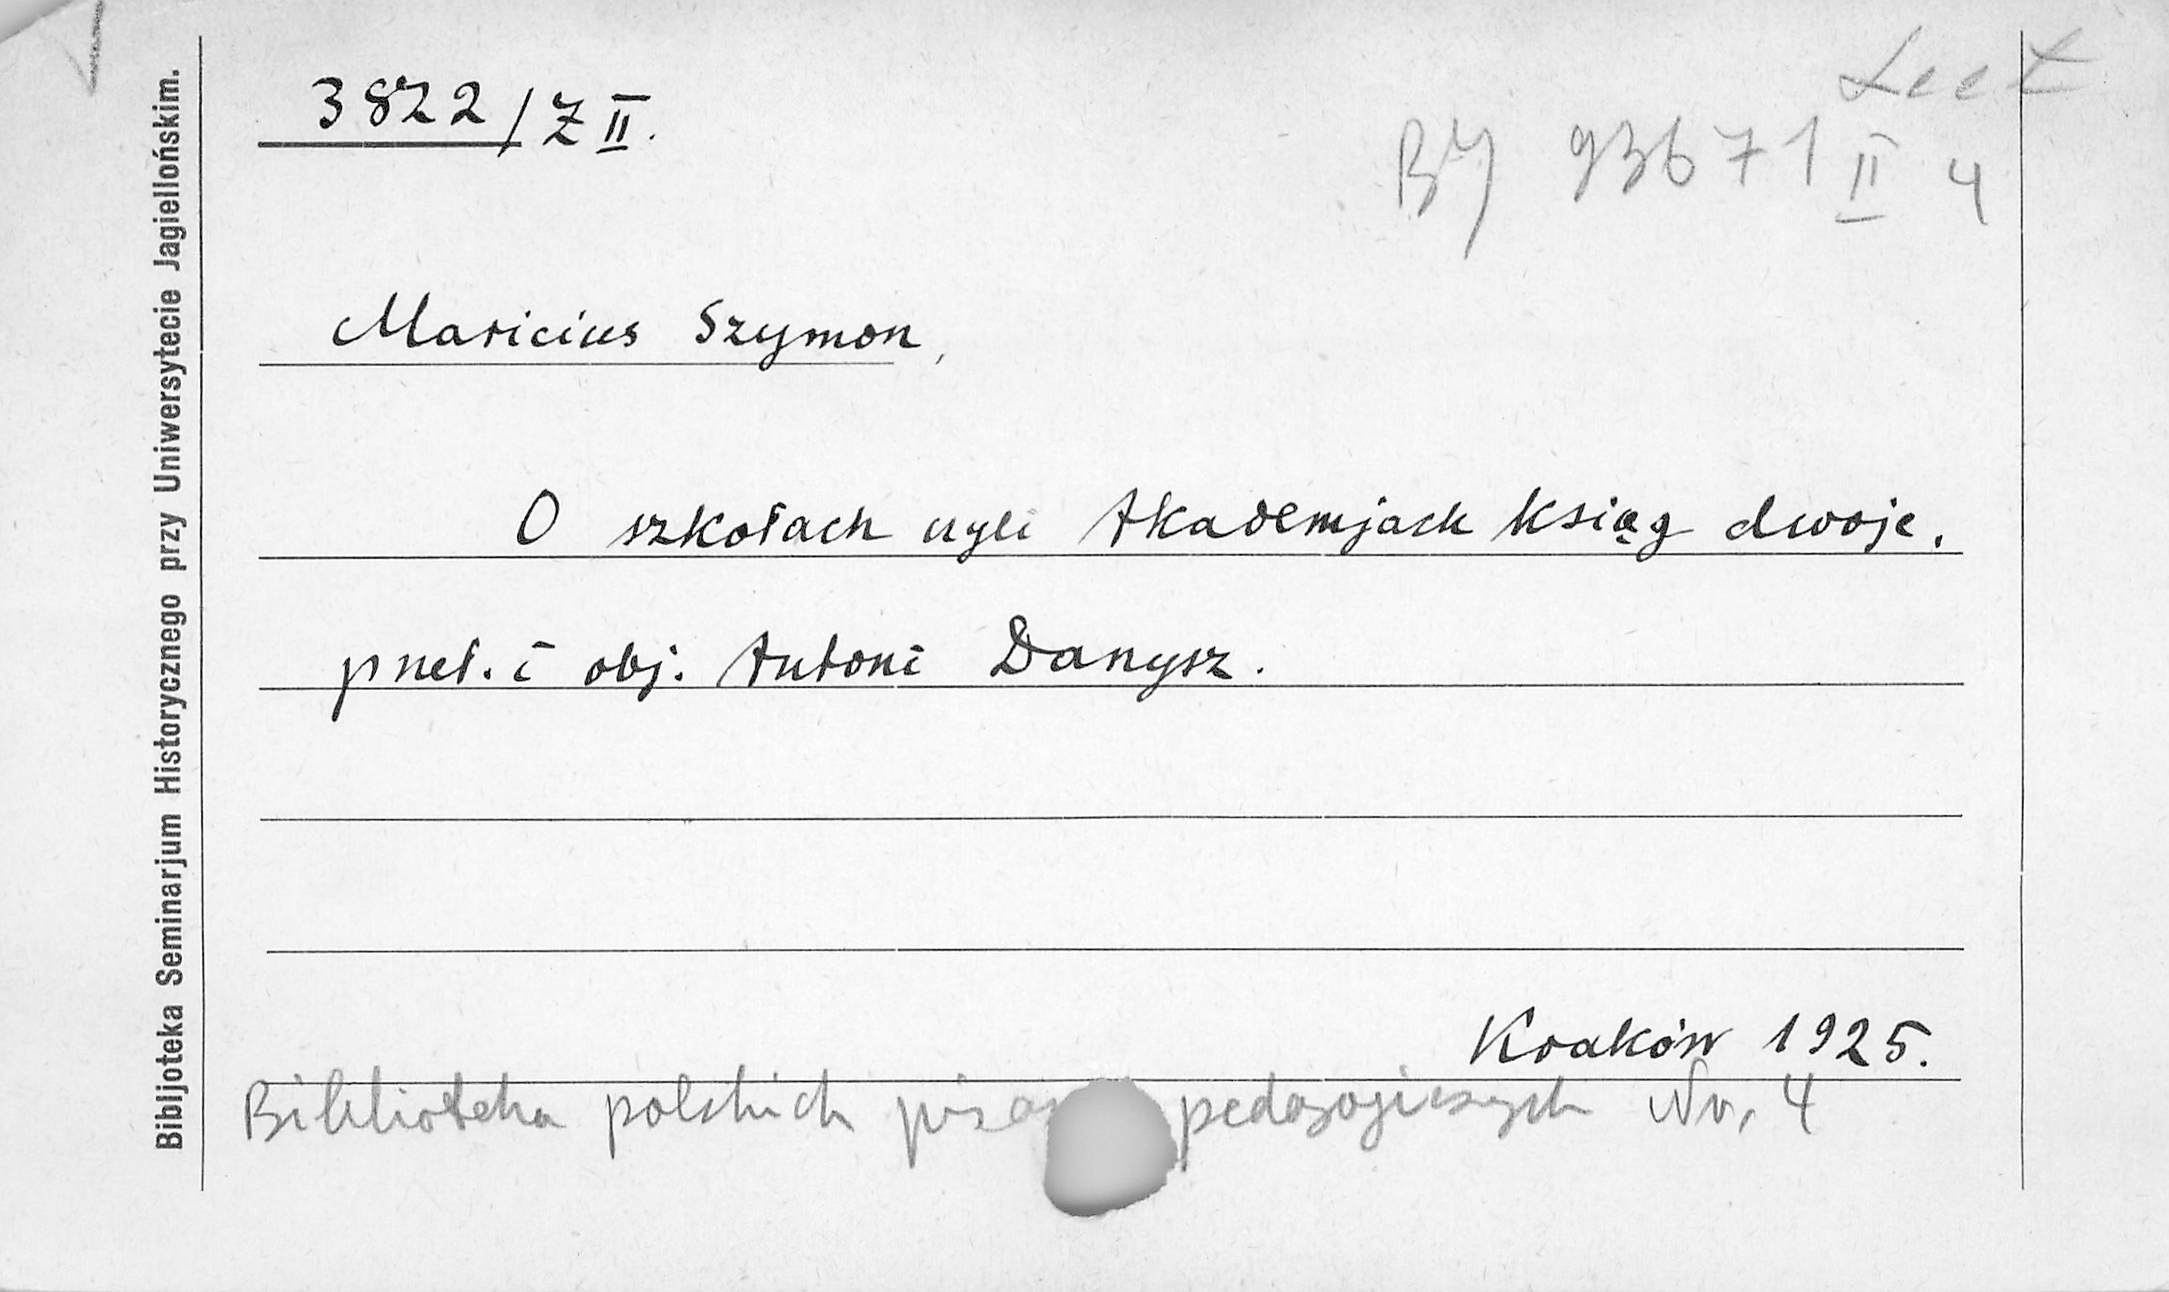 Bibljoteka Seminarjum Historycznego przy Uniwersytecie Jagiellońskim.
3822/Z II.
Lect
BJ 93671 II 4
Maricius Szymon,
O szkołach czyli Akademjach ksiąg dwoje.
przeł. i obj. Antoni Danysz.
Kraków 1925.
Biblioteka polskich pedagogicznych Nr. 4